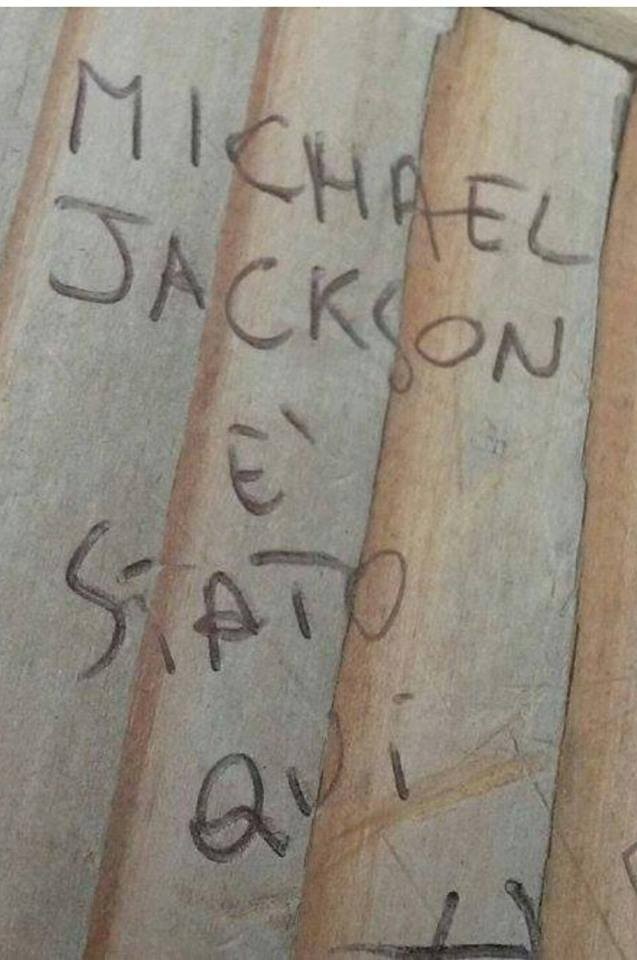 MICHAEL
JACKSON
E'
STATO
QUi